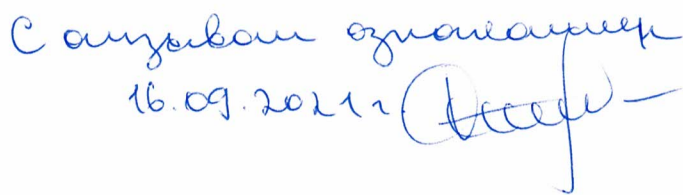 С отзывом ознакомлен
16.09.2021 г.